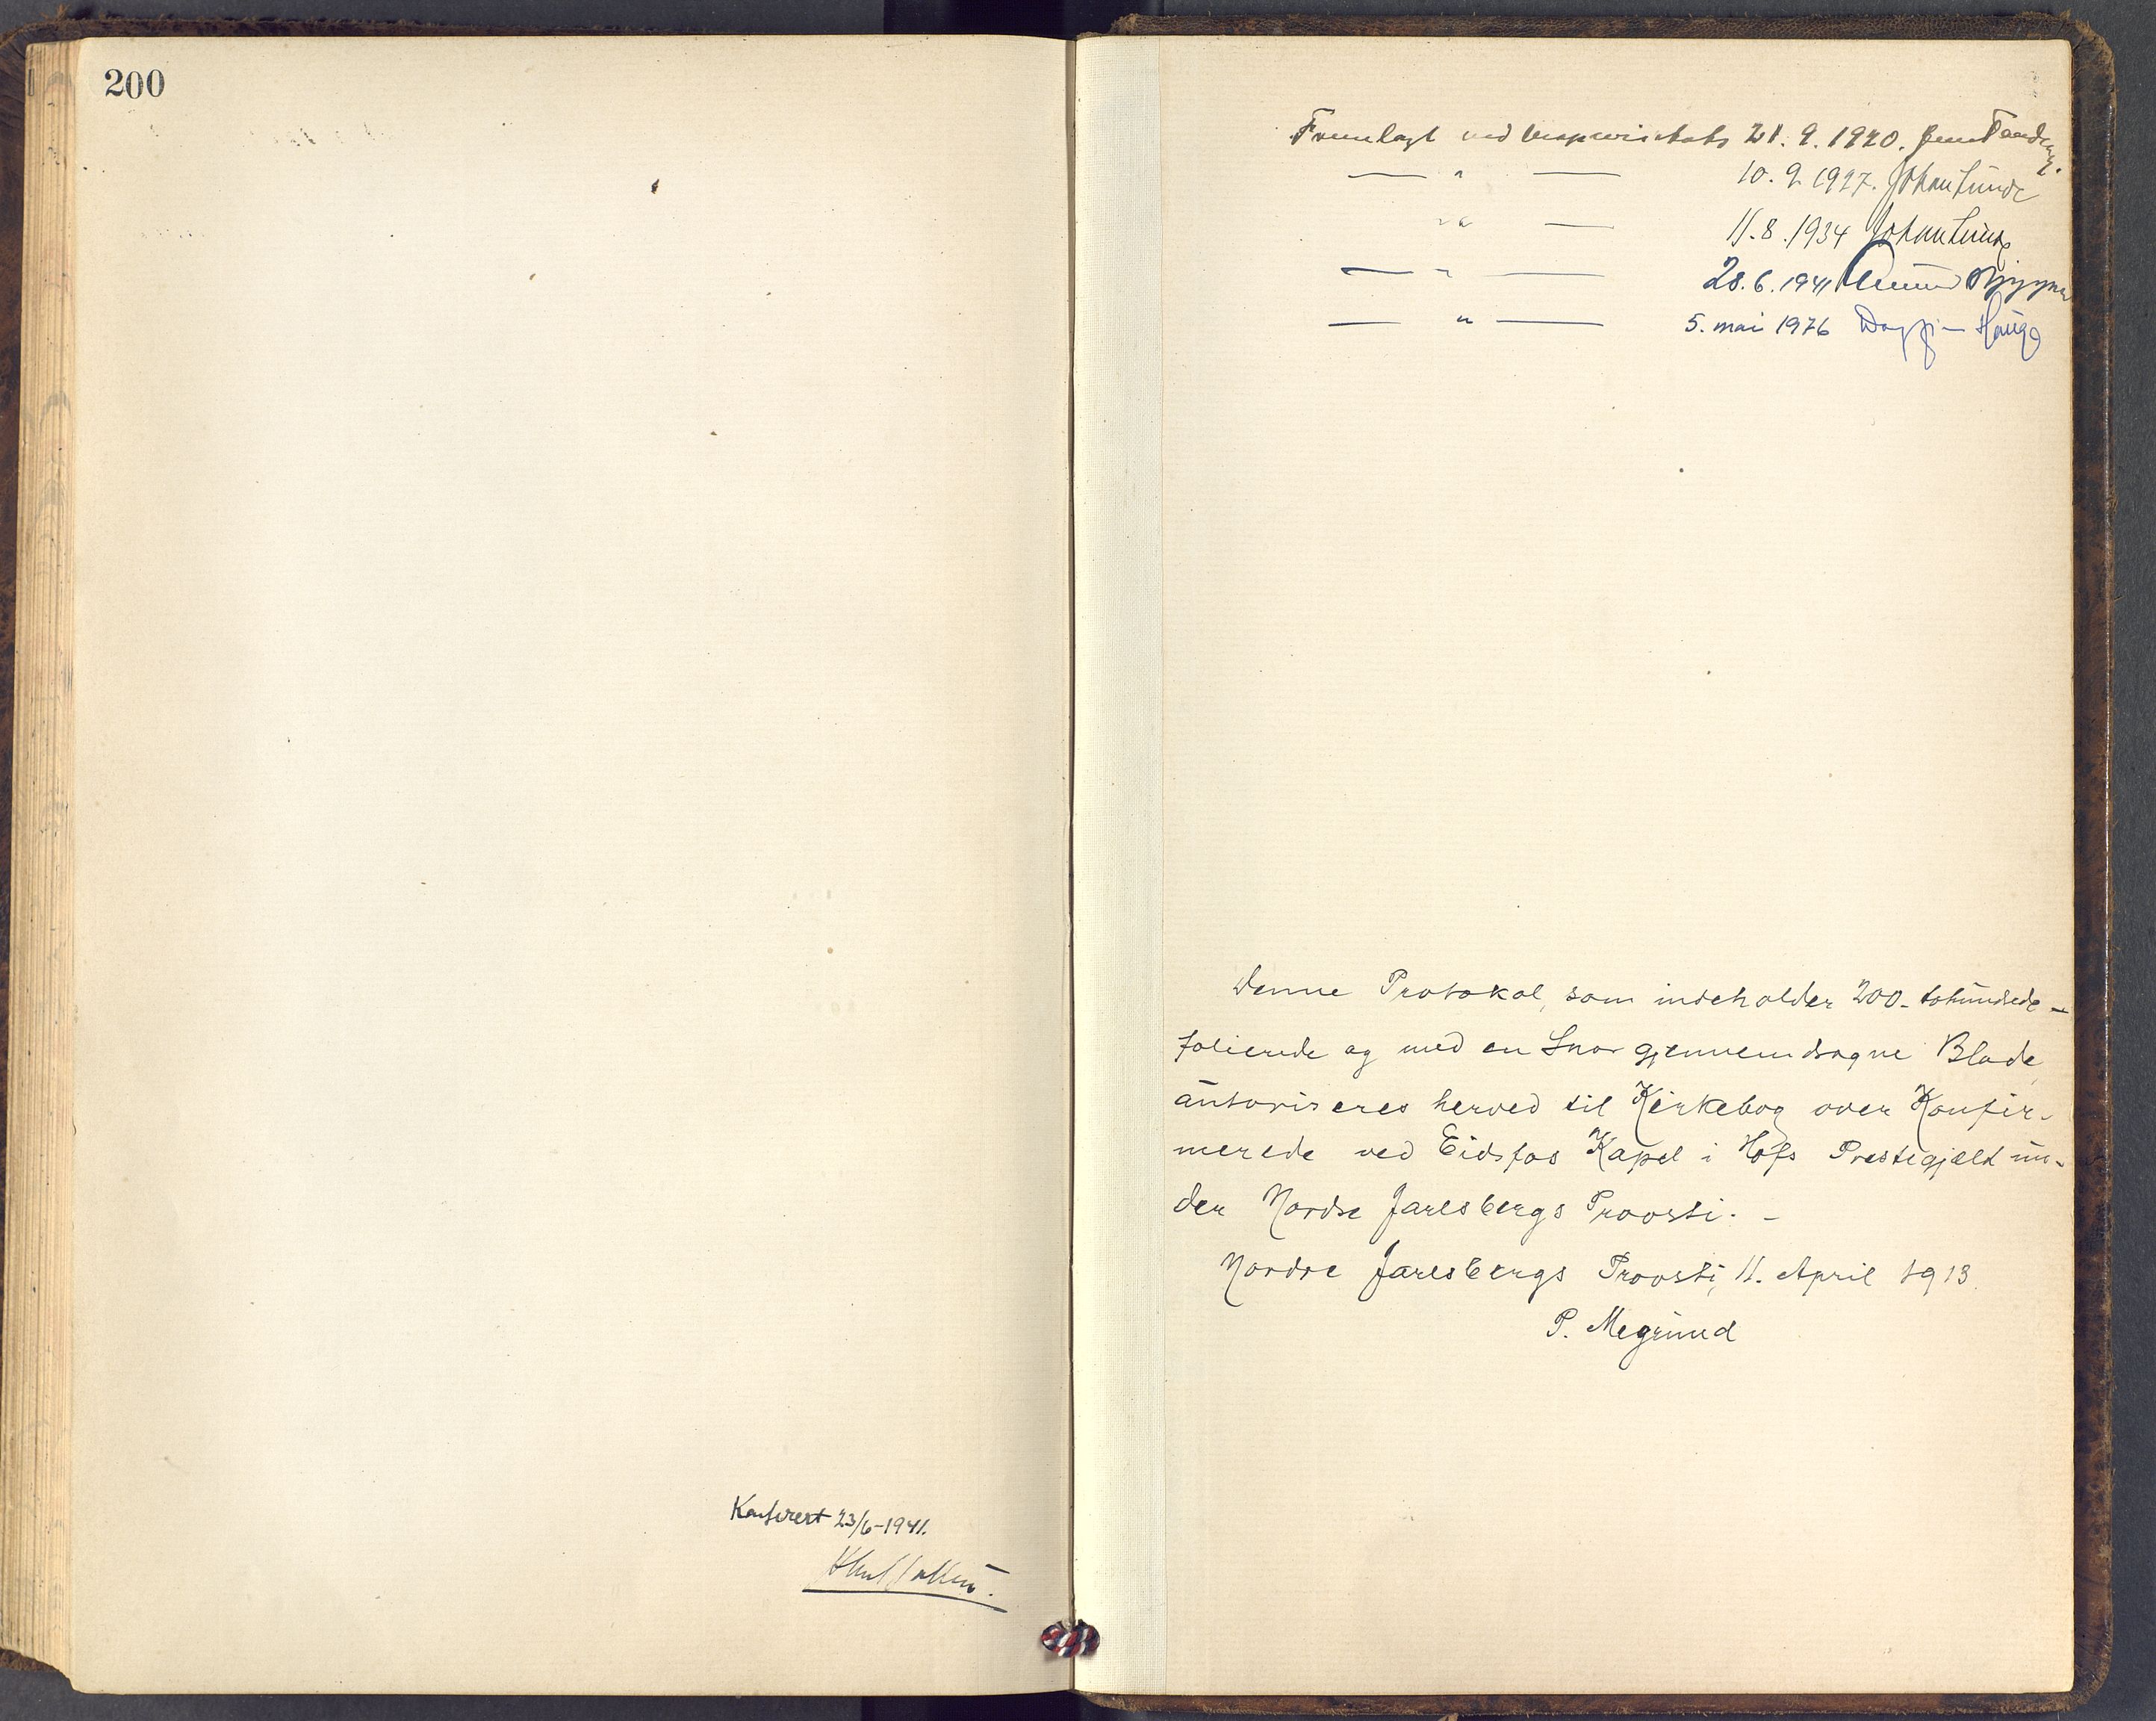 200
Konferert 23/6-1941.
Fremlagt ved bispevisitats 21. 9. 1920. Jens
— " — 10. 9. 1927. Johan Lunde
" — 11. 8. 1934 Johan Lunde
— " — 28. 6. 1941
— " — 5. mai 1976 Dagfinn Hauge
Denne Protokol, som indeholder 200 - tohundrede -
folierede og med en Snor gjennemdragne Blade,
autoriseres herved til Kirkebog over Konfir-
merede ved Eidsfos Kapel i Hofs Prestegjæld un-
der Nordre Jarlsbergs Provsti. -
Nordre Jarlsbergs Provsti, 11. April 1913.
P. Megrund